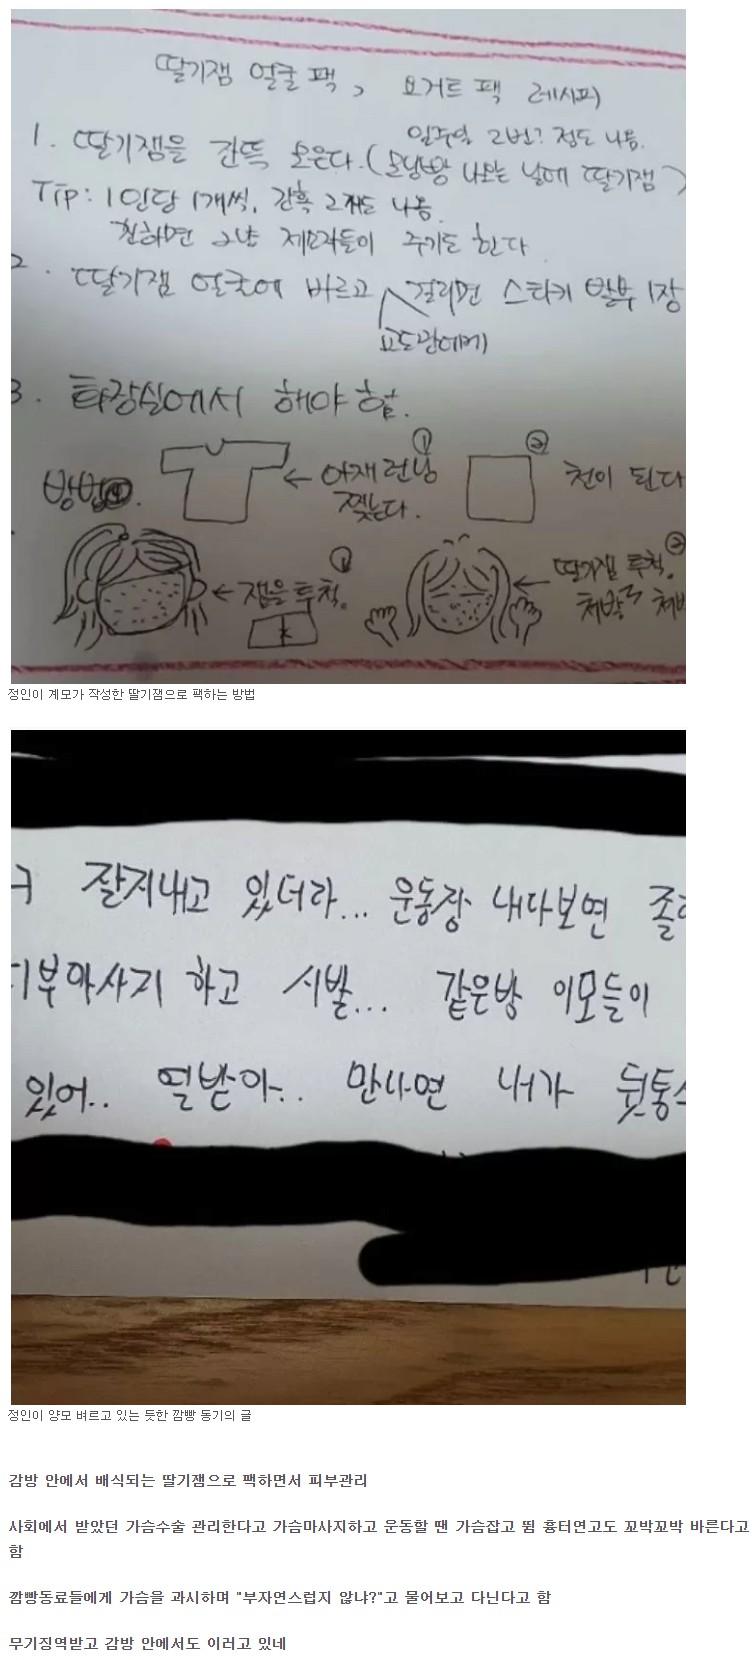 딸기잼 얼굴 팩, 요거트 팩 레시피
일주일 2번? 정도 나옴.
1. 딸기잼을 잔뜩 모은다. (모닝빵 나오는 날에 딸기잼)
Tip: 1인당 1개씩, 간혹 2개도 나옴
친하면 그냥 제소자들이 주기도 한다
2. 딸기잼 얼굴에 바르고 걸리면 스티커 발부 1장
교도관에게
3. 화장실에서 해야 함.
방법
① 아재 런닝
찢는다.
② 천이 된다
① 잼을 투척.
③ 딸기잼 투척.
처박처박
정인이 계모가 작성한 딸기잼으로 팩하는 방법
잘지내고 있더라... 운동장 내다보면
부마사지 하고 시발... 같은방 이모들이
있어.. 열받아.. 만나면 내가 뒷통
정인이 양모 벼르고 있는 듯한 깜빵 동기의 글
감방 안에서 배식되는 딸기잼으로 팩하면서 피부관리
사회에서 받았던 가슴수술 관리한다고 가슴마사지하고 운동할 땐 가슴잡고 뜀 흉터연고도 꼬박꼬박 바른다고
함
깜빵동료들에게 가슴을 과시하며 "부자연스럽지 않냐?"고 물어보고 다닌다고 함
무기징역받고 감방 안에서도 이러고 있네